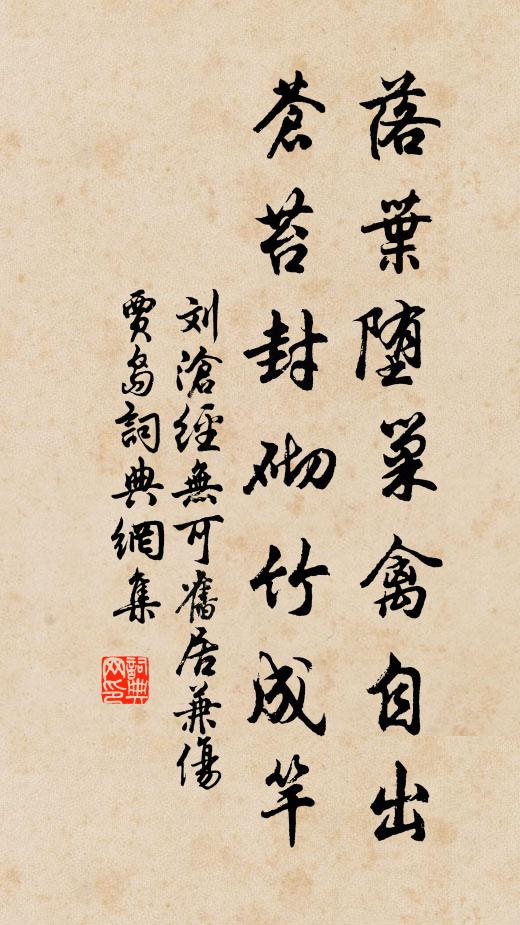 落葉堕巢禽自出
蒼苔封砌竹成竿
刘滄經無可舊居兼傷
賈島詞典網集
詞典
网印